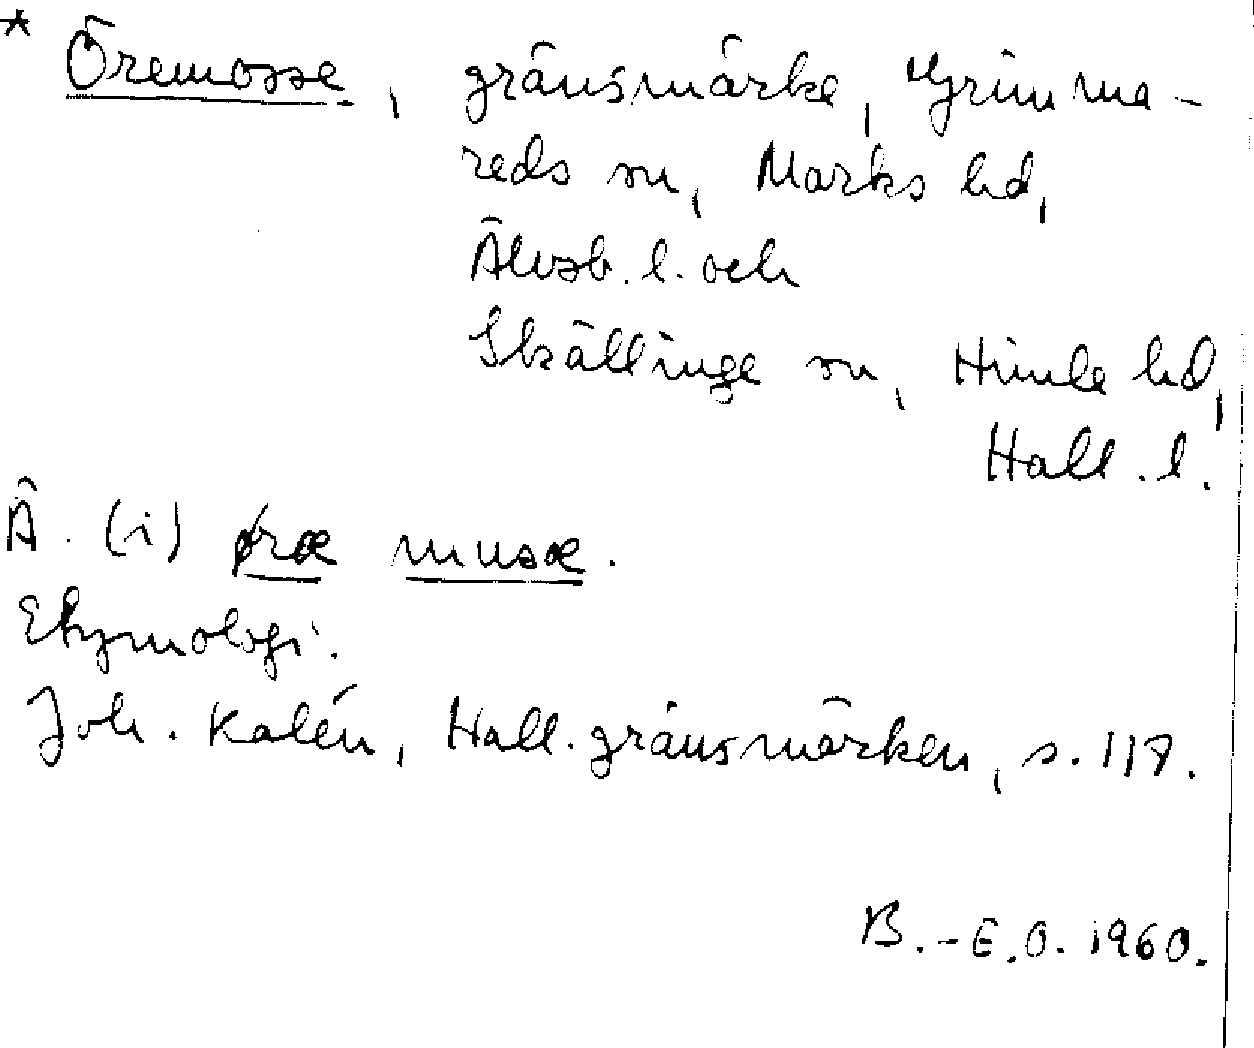 * Öremosse, gränsmärke, Grimma-
reds sn, Marks hd,
Älvsb. l. och
Skällinge sn, Himle hd,
Hall. l.
Ä. (i) øræ musæ.
Etymologi.
Joh. Kalén, Hall. gränsmärken, s. 117.
B.-E.O. 1960.